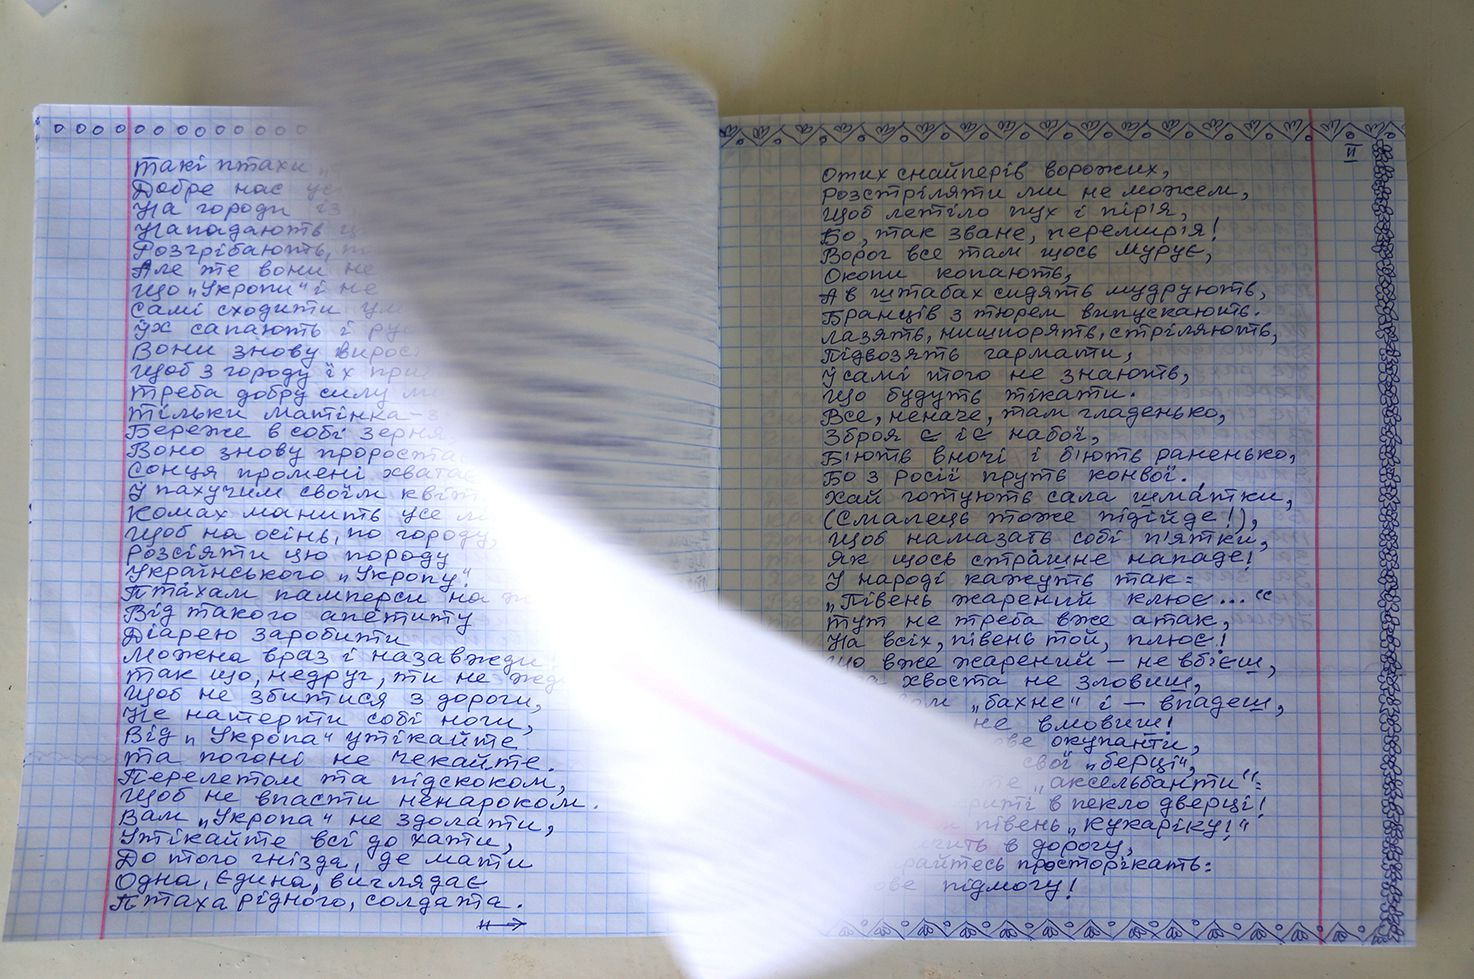 такі птахи
Добре нас
На городи із
Нападають
Розгрібають,
Але те вони не
Що „Укропи" і не
Самі сходити
Їх сапають і
Вони знову
Щоб з городу їх
треба добру силу
тільки матінка-
Береже в собі зерня,
Воно знову
Сонця промені
У пахучим своїм
Комах манить усе
Щоб на осінь, по городу,
Розсіяти цю породу
Українського „Укропу".
Птахам памперси на
Від такого апетиту
Діарею заробити
Можена враз і назавжди
так що, недруг, ти не
Щоб не збитися з дороги,
Не натерти собі ноги,
Від „Укропа" утікайте
та погоні не чекайте.
Перелетом та підскоком,
Щоб не впасти ненароком.
Вам „Укропа" не здолати,
Утікайте всі до хати,
До того гнізда, де мати
Одна, єдина, виглядає
Птаха рідного, солдата.
II
Отих снайперів ворожих,
Розстріляти ми не можем,
Щоб летіло пух і пір'я,
Бо, так зване, перемир'я!
Ворог все там щось мурує,
Окопи копають,
А в штабах сидять мудрують,
Бранців з тюрем випускають.
лазять, нишпорять, стріляють,
Підвозять гармати,
У самі того не знають,
Що будуть тікати.
Все, неначе, там гладенько,
Зброя є і є набої,
Б'ють вночі і б'ють раненько,
Бо з росії пруть конвої.
Хай готують сала шматки,
(Смалець тоже підійде!),
Щоб намазать собі п'ятки,
Як щось страшне нападе!
У народі кажуть так:
„Півень жарений клює..."
тут не треба вже атак,
На всіх, півень той, плює!
вже жарений – не вб'єш,
хвоста не зловиш,
„бахне" і – впадеш,
не вмовиш!
окупанти,
свої „берці",
„аксельбанти":
в пекло дверці!
півень „Кукаріку!"
в дорогу,
просторікать:
підмогу!